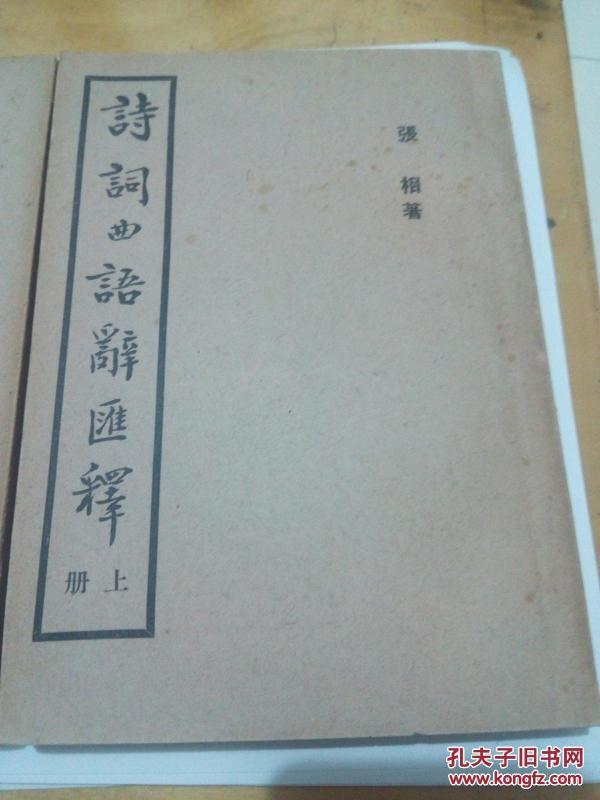 張相著
詩詞曲語辭匯釋
上册
孔夫子旧书网
www.kongfz.com